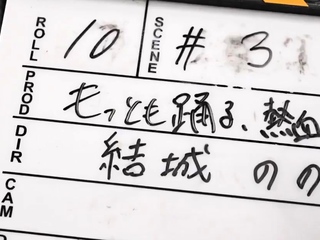 ROLL 10 SCENE # 3
PROD もっとも踊る、熱血
DIR 結城 のの
CAM